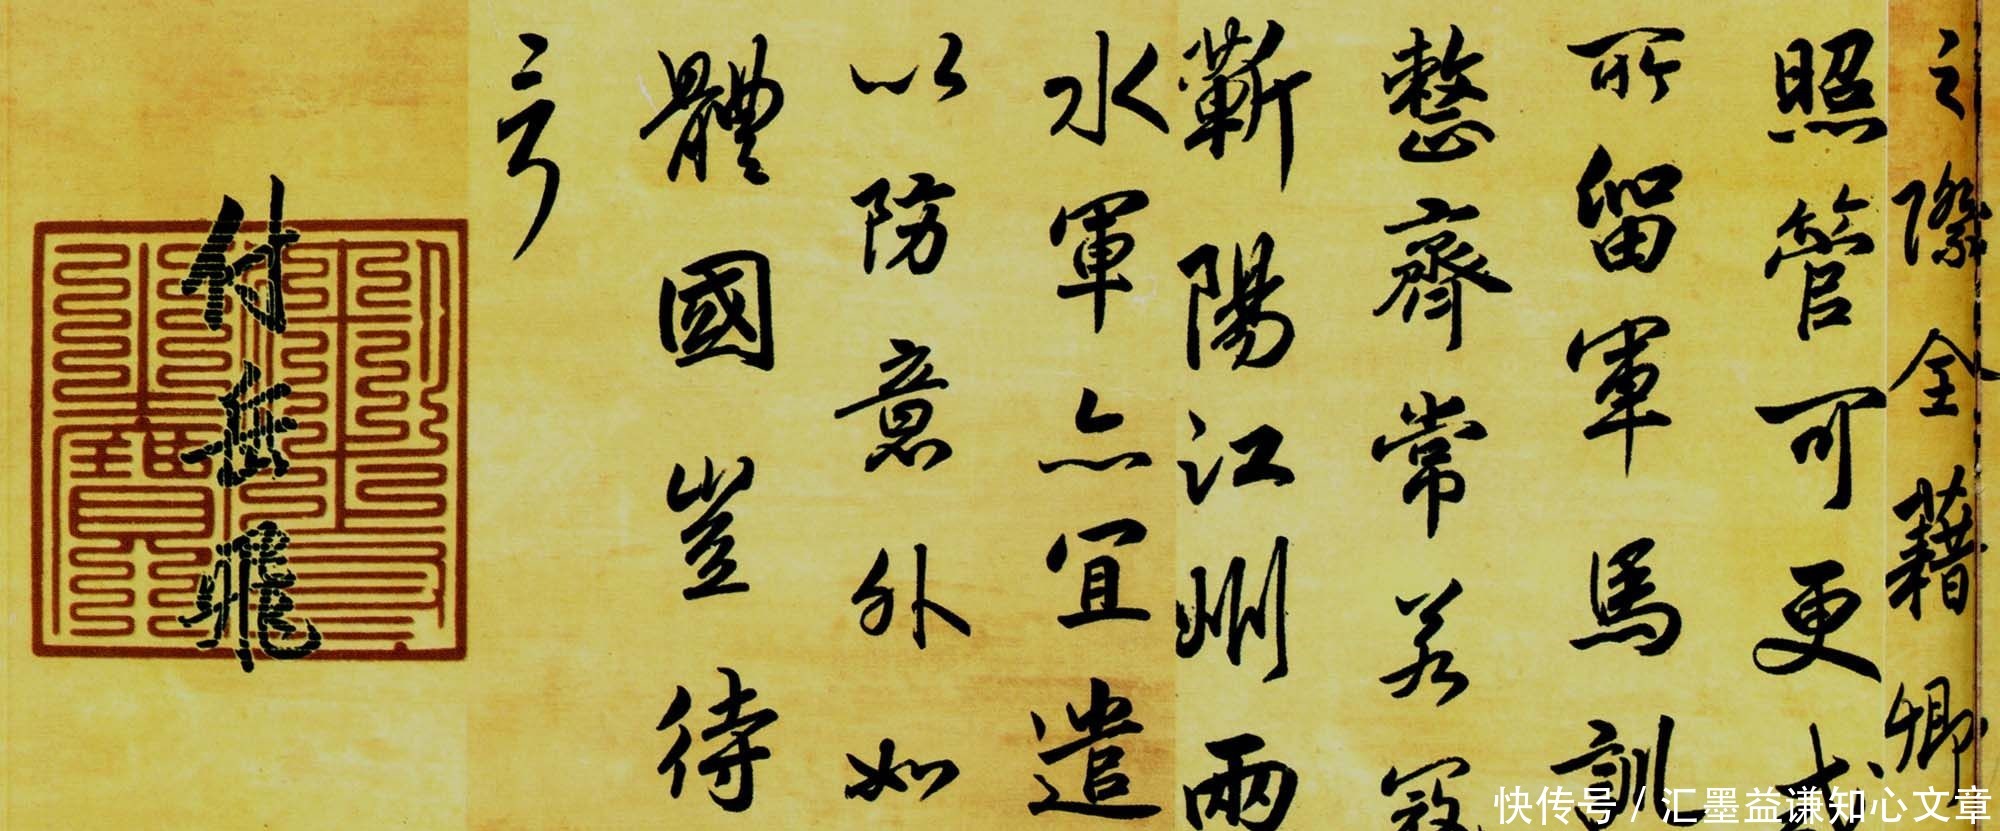 之際全藉卿
照管可更
所留軍馬訓
整齊常若寇
蘄陽江州兩
水軍亦宜遣
以防意外如
體國豈待
言
付岳飛
快传号 / 汇墨益谦知心文章